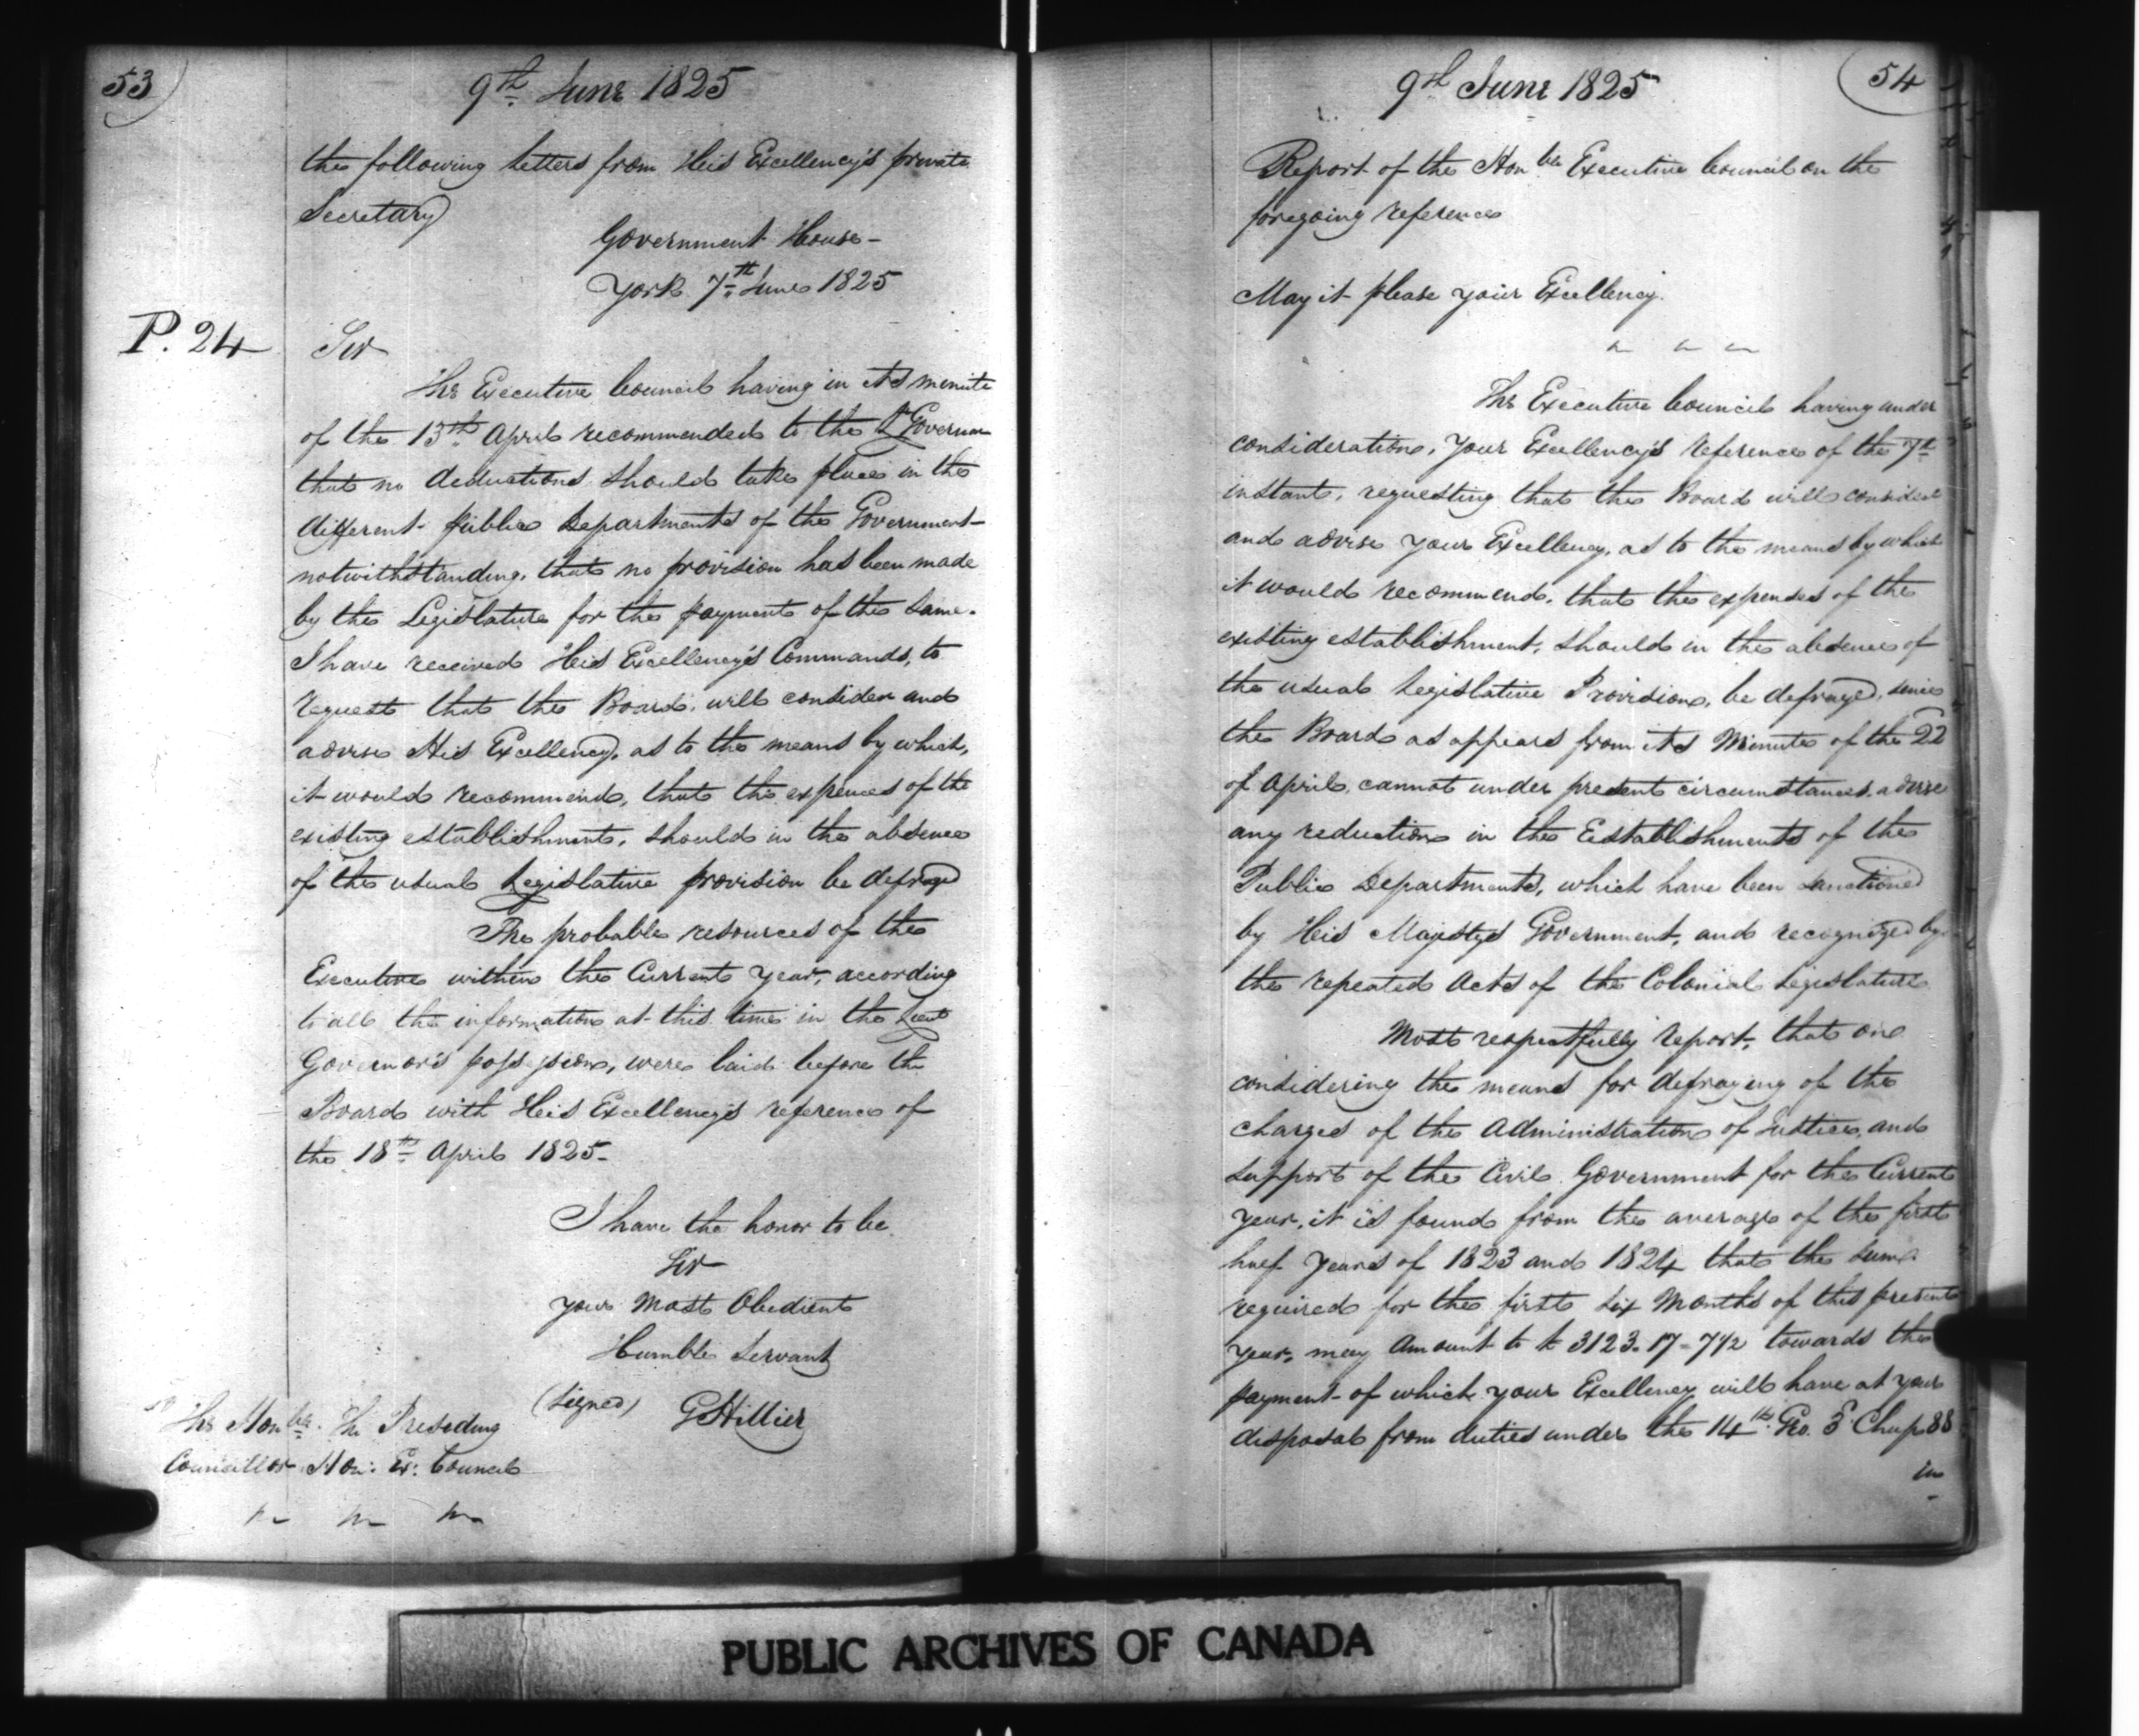 53
9th June 1825
the following letters from His Excellency's private
Secretary
Government House -
York 7th June 1825
P. 24
Sir
The Executive Council having in its minute
of the 13th April recommended to the Lt Governor
that no deductions should take place in the
different public Departments of the Government
notwithstanding, that no provision has been made
by the Legislature for the payment of the same.
I have received His Excellency's Commands, to
request that the Board, will consider and
advise His Excellency, as to the means by which,
it would recommend, that the expences of the
existing establishments, should in the absence
of the usual Legislative provision be defrayed
The probable resources of the
Executive within the Current year, according
to all the information at this time in the Lieut
Governor's possession, were laid before the
Board with His Excellency's reference of
the 18th April 1825-
I have the honor to be
Sir
your Most Obedient
Humble Servant
(signed) G Hillier
The Honble. The Presiding
Councillor Hon: Ex: Council
54
9th June 1825
Report of the Honble Executive Council on the
foregoing reference
May it please your Excellency.
The Executive Council having under
consideration, Your Excellency's reference of the 7th
instant, requesting that the Board will consider
and advise your Excellency, as to the means by which
it would recommend, that the expenses of the
existing establishment, should in the absence of
the usual Legislative Provision, be defrayed, since
the Board as appears from its Minute of the 22
of April, cannot under present circumstances, advise
any reduction in the Establishments of the
Public Departments, which have been sanctioned
by His Majestys Government, and recognized by
the repeated Acts of the Colonial Legislature
Most respectfully report, that on
considering the means for defraying of the
charges of the Administration of Justice, and
support of the Civil Government for the Current
year, it is found from the average of the first
half years of 1823 and 1824 that the sum
required for the first six Months of this present
year, may Amount to £ 3123.17-7 1/2 towards the
payment of which your Excellency will have at your
disposal from duties under the 14th Geo. 3d Chap 88
in
PUBLIC ARCHIVES OF CANADA